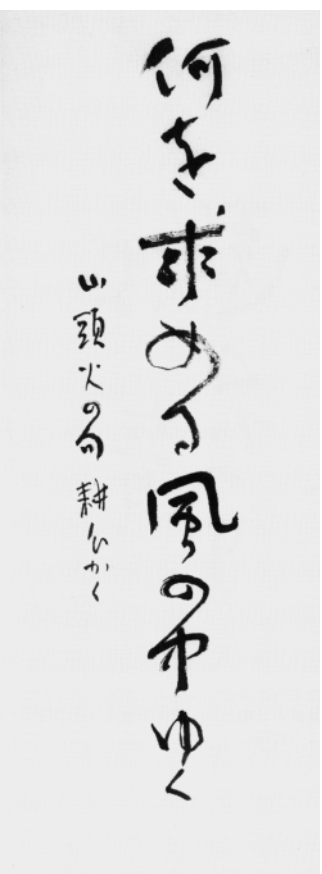 何を求める風の中ゆく
山頭火の句 耕人かく